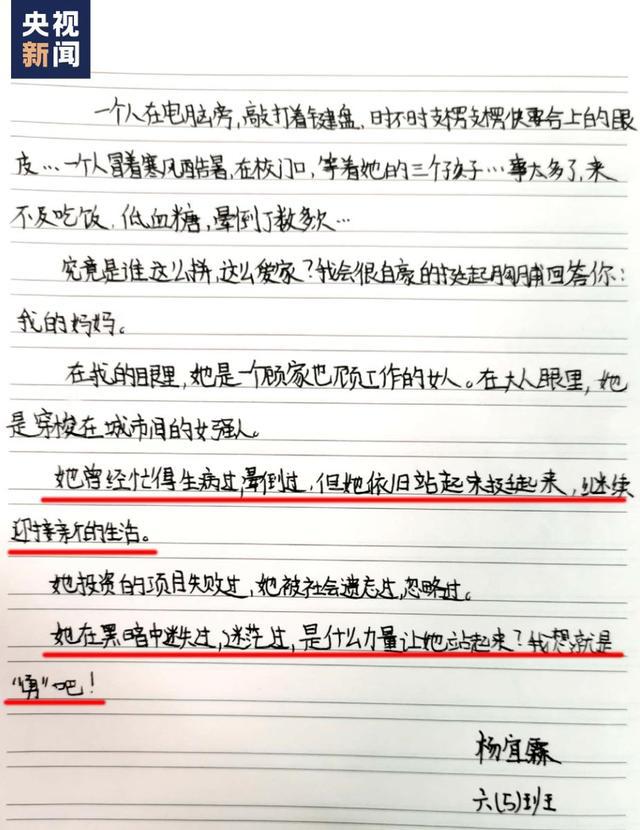 央视
新闻
一个人在电脑旁，敲打着键盘，时不时支楞支楞快要合上的眼
皮…一个人冒着寒风酷暑，在校门口，等着她的三个孩子…事太多了，来
不及吃饭，低血糖，晕倒了数多次…
究竟是谁这么拼，这么爱家？我会很自豪的挺起胸脯回答你：
我的妈妈。
在我的眼里，她是一个顾家也顾工作的女人。在大人眼里，她
是穿梭在城市间的女强人。
她曾经忙得生病过，晕倒过，但她依旧站起来挺起来，继续
迎接新的生活。
她投资的项目失败过，她被社会遗忘过，忽略过。
她在黑暗中迷失过，迷茫过，是什么力量让她站起来？我想就是
“勇”吧！
杨宜霖
六(5)班